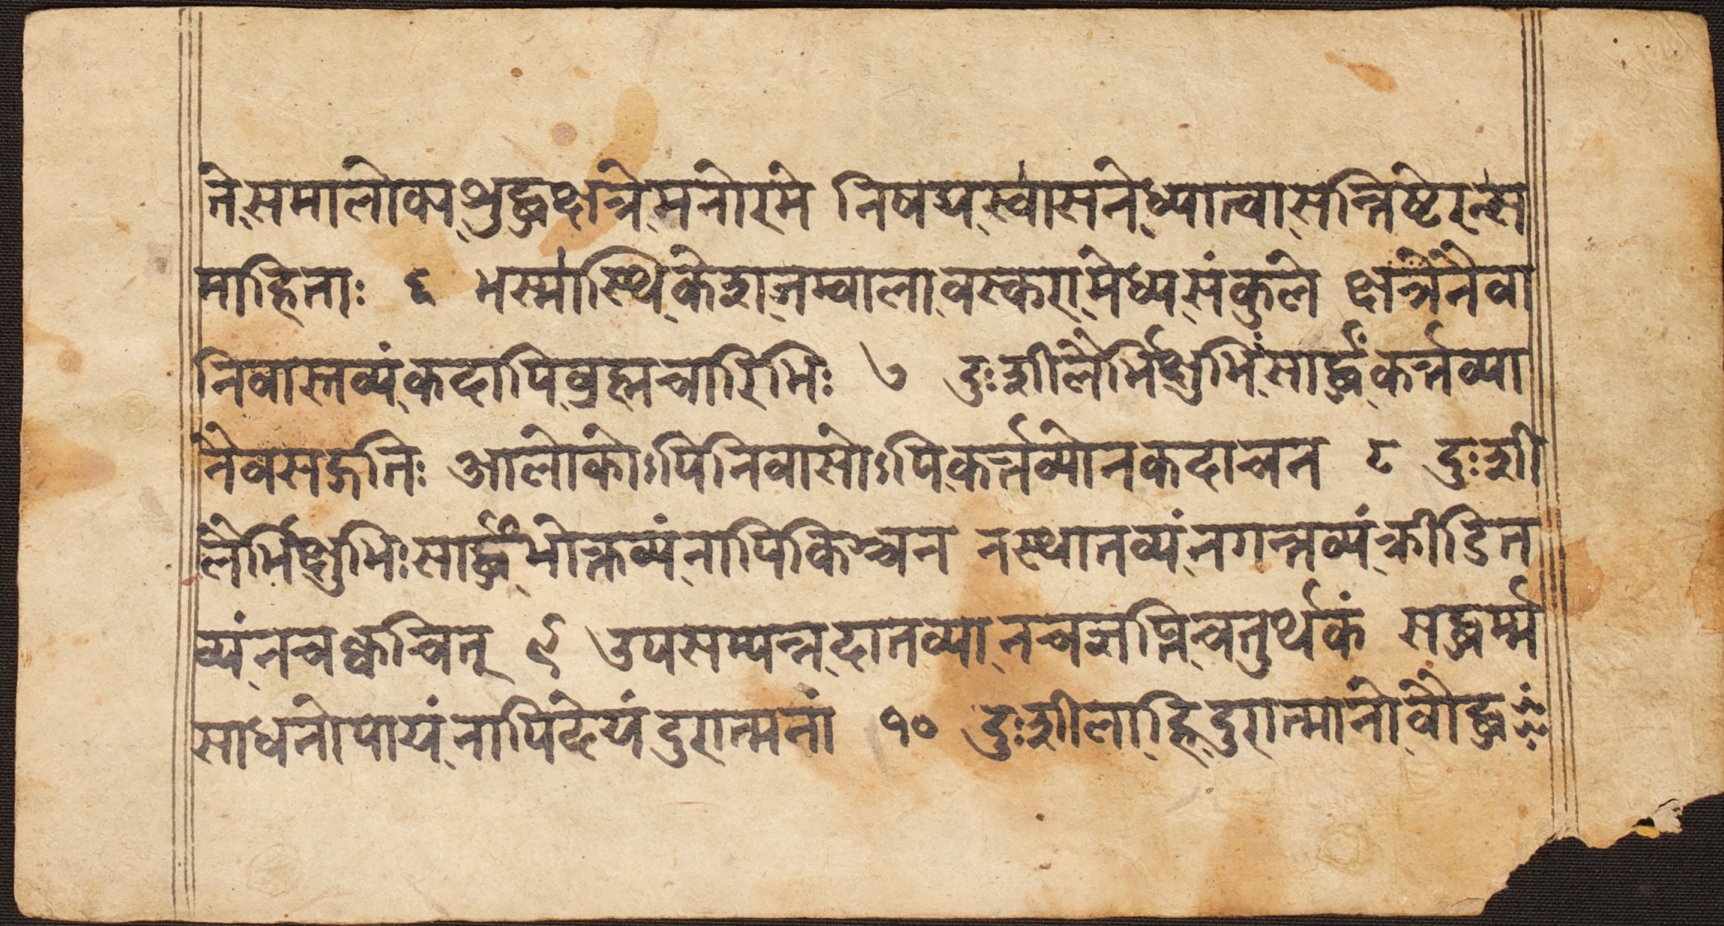 ने समालोक्य शुद्धक्षत्रे मनोरमे निषद्य स्वासने ध्यात्वा सन्तिष्टेरन्स
माहिताः ६ भस्मास्थिकेशजम्वालावस्करामेध्यसंकुले क्षत्रे नैवा
निवास्तव्यं कदापि व्रह्मचारिभिः ७ दुःशीलैर्भिक्षुभिः सार्द्धं कर्त्तव्या
नैव सङ्गतिः आलोकोऽपि निवासोऽपि कर्त्तव्यो न कदाचन ८ दुःशी
लैर्भिक्षुभिः सार्द्धं भोक्तव्यं नापि किञ्चन न स्थातव्यं न गन्तव्यं क्रीडित
व्यं न च क्वचित् ९ उपसम्पन्न दातव्या न च ज्ञप्तिचतुर्थकं सद्धर्म्म
साधनोपायं नापि देयं दुरात्मनां १० दुःशीला हि दुरात्मानो वौद्ध